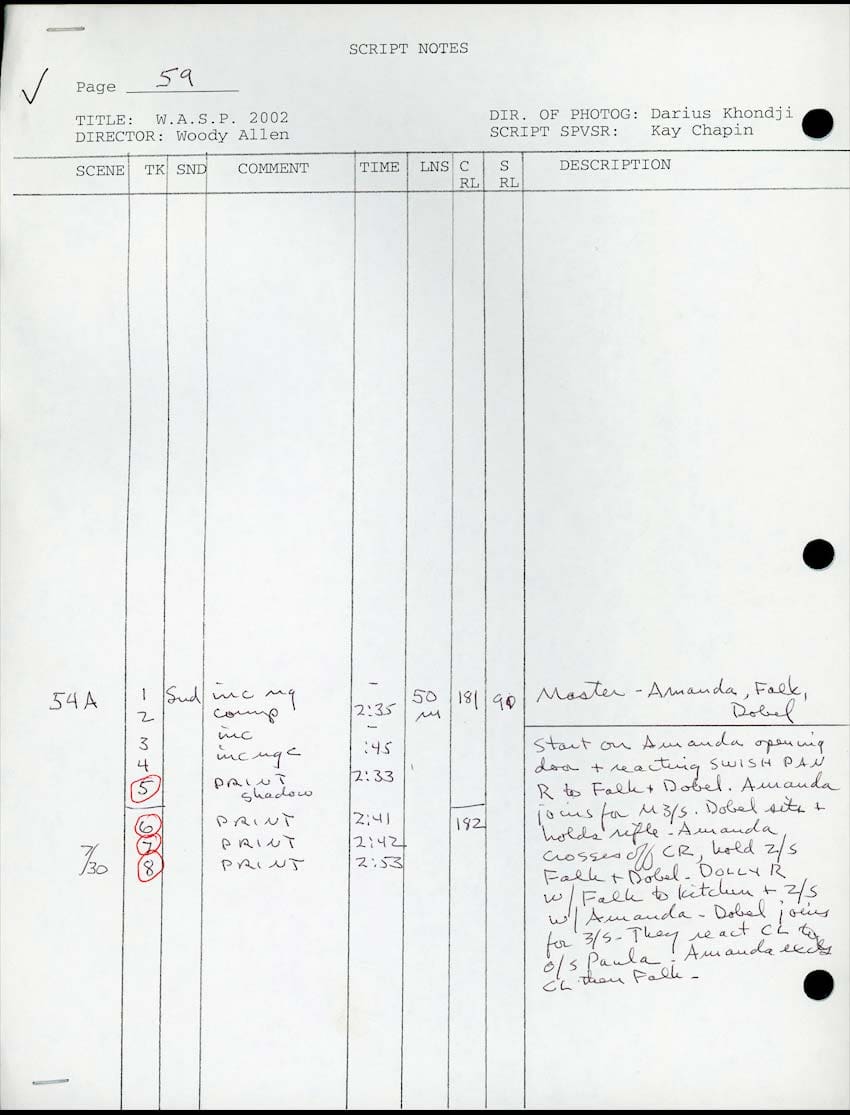 SCRIPT NOTES
✓ Page 59
TITLE: W.A.S.P. 2002
DIR. OF PHOTOG: Darius Khondji
DIRECTOR: Woody Allen
SCRIPT SPVSR: Kay Chapin
SCENE TK SND COMMENT TIME LNS C RL S RL DESCRIPTION
54A 1 Snd inc ng - 50 181 90 Master - Amanda, Falk,
Dobel
2 comp 2:35 m
3 inc -
4 inc ngc :45
5 PRINT 2:33
shadow
6 PRINT 2:41 182
7 PRINT 2:42
7/30 8 PRINT 2:53
Start on Amanda opening
door + reacting SWISH PAN
R to Falk + Dobel. Amanda
joins for M 3/S. Dobel sits +
holds rifle - Amanda
crosses off CR, hold 2/S
Falk + Dobel - DOLLY R
w/ Falk to kitchen + 2/S
w/ Amanda - Dobel joins
for 3/S - They react CL to
O/S Paula - Amanda exits
CL then Falk -